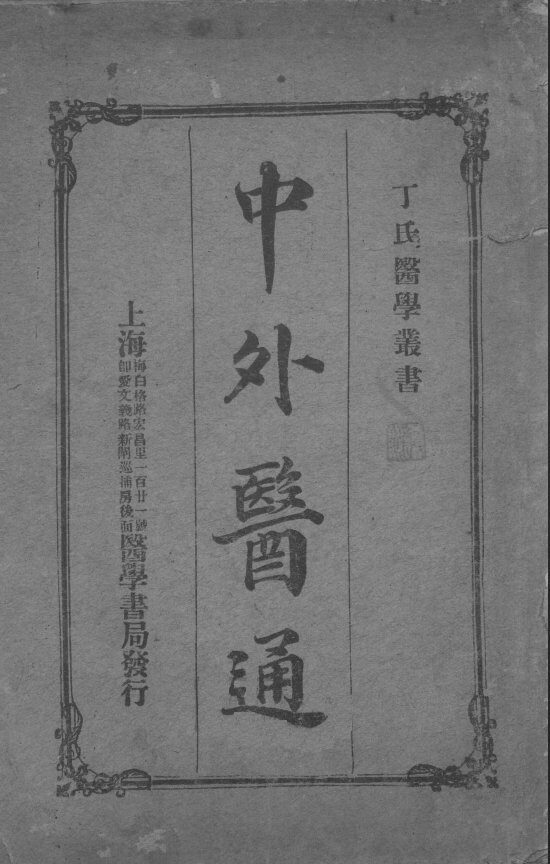 丁氏醫學叢書
中外醫通
上海
梅白格路宏昌里一百廿一號
卽愛文義路新閘巡捕房後面
醫學書局發行